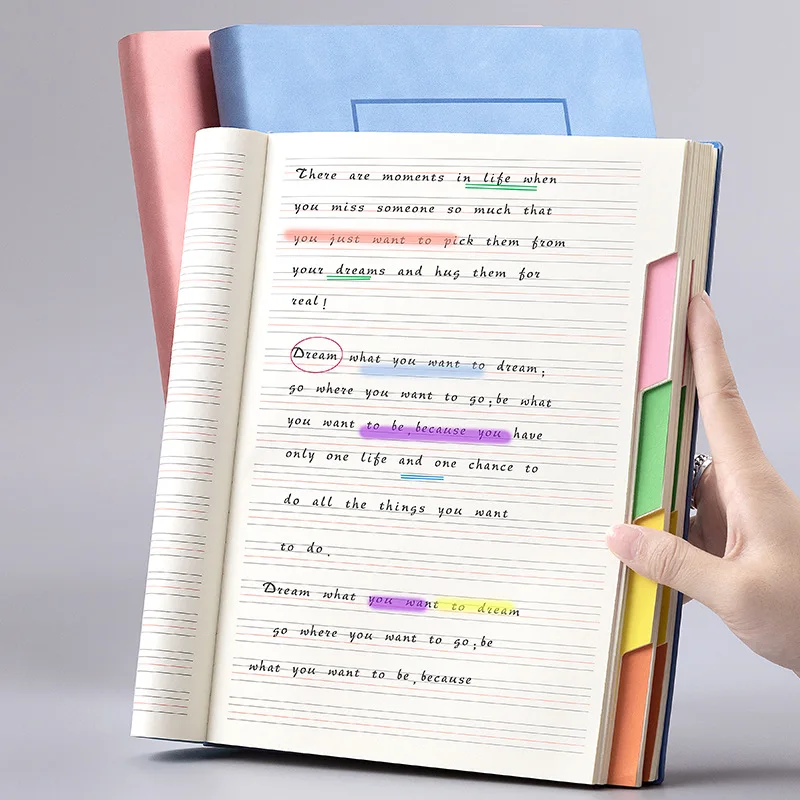 There are moments in life when
you miss someone so much that
you just want to pick them from
your dreams and hug them for
real!
Dream what you want to dream;
go where you want to go;be what
you want to be,because you have
only one life and one chance to
do all the things you want
to do.
Dream what you want to dream
go where you want to go;be
what you want to be,because